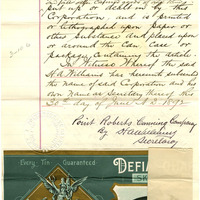 put up or dealt in by this
Corporation, and is printed
or lithographed upon paper or
other substance and placed upon
or around the Can, Case or
package containing the article.
In Witness Whereof the said
H A Williams has hereunto subscribed
the name of said Corporation and his
own Name as Secretary thereof this
30th day of June A D. 1892
Point Roberts Canning Company
By
Secretary
Every Tin Guaranteed
DEFIA